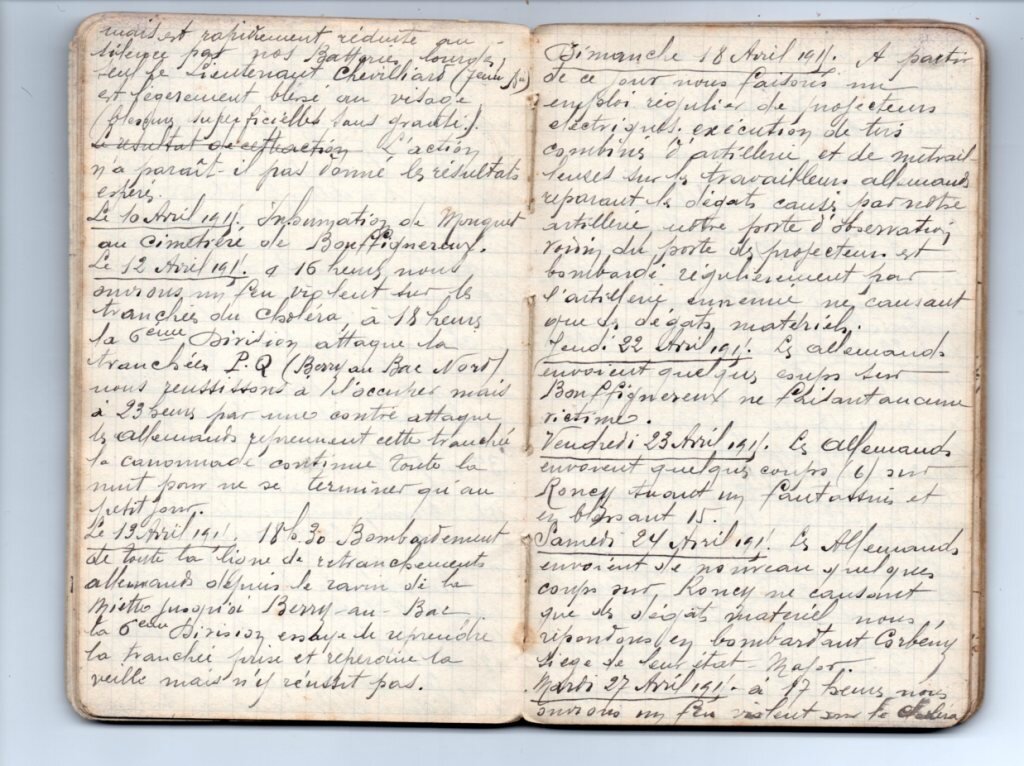 mais est rapidement réduite au
silence par nos Batteries lourdes,
seul le Lieutenant Chevilliard (Jeune)
est légèrement blessé au visage
(blesures superficielles sans gravité).
Le résultat de cette action L'action
n'a paraît-il pas donné les résultats
espéré.
Le 10 Avril 191 . Inhumation de Mouquet
au cimetière de Bouffignereux.
Le 12 Avril 191 . a 16 heures nous
ouvrons un feu violent sur les
tranchées du Choléra, à 18 heures
la 6eme Division attaque la
tranchée P.Q (Berry au Bac Nord)
nous reussissons à l'occuper mais
à 23 heures par une contre attaque
les allemands reprennent cette tranchée
la canonnade continue toute la
nuit pour ne se terminer qu'au
petit jour.
Le 13 Avril 191 . 18h.30 Bombardement
de toute la ligne de retranchements
allemands depuis le ravin de la
Miette jusqu'à Berry-au-Bac
la 6eme Division essaye de reprendre
la tranchée prise et reperdue la
veille mais n'y réussit pas.
Dimanche 18 Avril 191 . A partir
de ce jour nous faisons un
emploi régulier de projecteurs
electriques. exécution de tirs
combinés d'artillerie et de mitrail
leuses sur les travailleurs allemands
réparant les dégats causés par notre
artillerie, notre poste d'Observation,
voisin du poste de projecteurs est
bombardé régulièrement par
l'artillerie ennemie ne causant
que des dégats matériels.
Jeudi 22 Avril 191 . Les allemands
envoient quelques coups sur
Bouffignereux ne faisant aucune
victime.
Vendredi 23 Avril 191 . Les Allemands
envoient quelques coups (6) sur
Roncy tuant un fantassin et
en blessant 15.
Samedi 24 Avril 191 . Les Allemands
envoient de nouveau quelques
coups sur Roncy ne causant
que des dégats matériel nous
répondons en bombardant Corbeny
siège de leur état-Major.
Mardi 27 Avril 191 . à 17 heures nous
ouvrons un feu violent sur le choléra